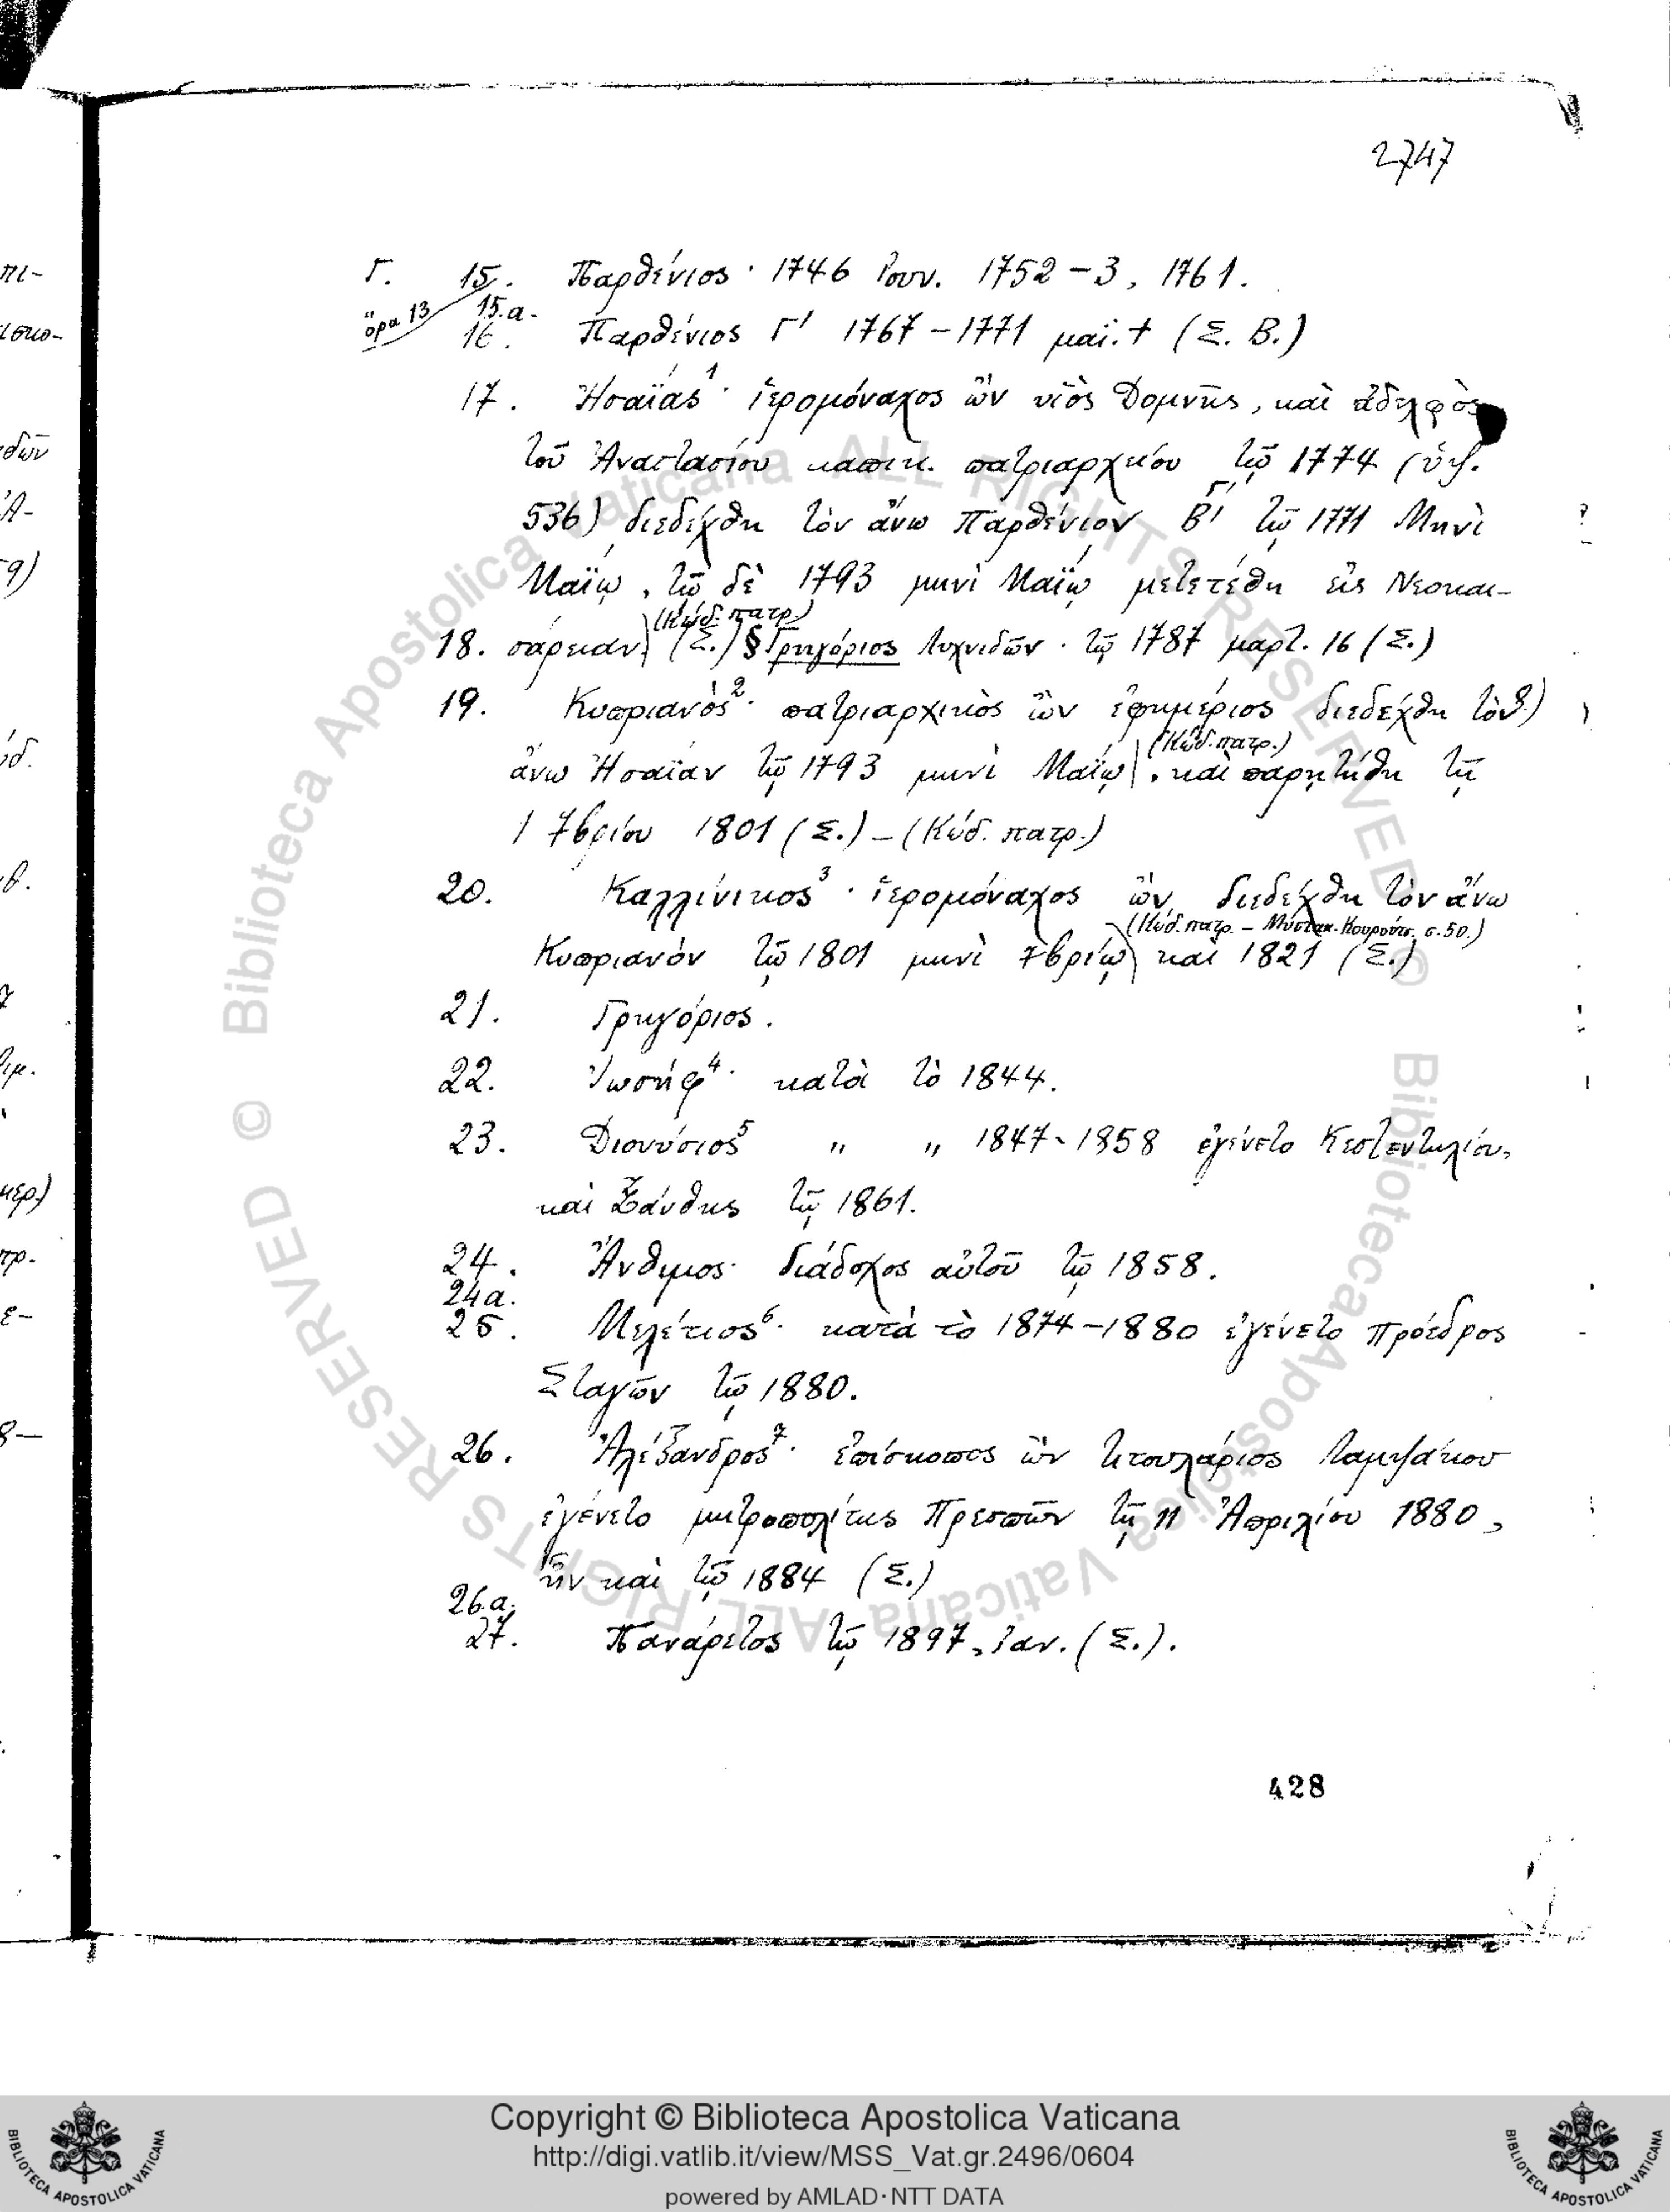 2747
Γ. 15. Παρθένιος · 1746 Ἰουν. 1752 – 3, 1761.
ὅρα 13 15.a.
16. Παρθένιος Γ' 1767 – 1771 μαΐ. † (Σ. Β.)
17. Ἡσαΐας¹ · ἱερομόναχος ὢν υἱὸς Δομνῆς, καὶ ἀδελφὸς
τοῦ Ἀναστασίου καπικ. πατριαρχείου τῷ 1774 (ὑψ.
536) διεδέχθη τὸν ἄνω Παρθένιον Β' Γ' τῷ 1771 Μηνὶ
Μαΐῳ, τῷ δὲ 1793 μηνὶ Μαΐῳ μετετέθη εἰς Νεοκαι-
(Κώδ. πατρ)
18. σάρειαν (Σ.) § Γρηγόριος Λυχνιδῶν · τῷ 1787 μαρτ. 16 (Σ.)
19. Κυπριανὸς² · πατριαρχικὸς ὢν ἐφημέριος διεδέχθη τὸν
(Κώδ. πατρ.)
ἄνω Ἡσαΐαν τῷ 1793 μηνὶ Μαΐῳ, καὶ παρῃτήθη τῇ
1 7βρίου 1801 (Σ.) – (Κώδ. πατρ.)
20. Καλλίνικος³ · ἱερομόναχος ὢν διεδέχθη τὸν ἄνω
(Κώδ. πατρ. – Μύστακ. Κουρούτσ. σ. 50.)
Κυπριανὸν τῷ 1801 μηνὶ 7βρίῳ καὶ 1821 (Σ.)
21. Γρηγόριος.
22. Ἰωσήφ⁴ · κατὰ τὸ 1844.
23. Διονύσιος⁵ " " 1847 - 1858 ἐγένετο Κεστεντηλίου,
καὶ Ξάνθης τῷ 1861.
24. Ἄνθιμος · διάδοχος αὐτοῦ τῷ 1858.
24a.
25. Μελέτιος⁶ · κατὰ τὸ 1874 – 1880 ἐγένετο πρόεδρος
Σταγῶν τῷ 1880.
26. Ἀλέξανδρος⁷ · ἐπίσκοπος ὢν τιτουλάριος Λαμψάκου
ἐγένετο μητροπολίτης Πρεσπῶν τῇ 11 Ἀπριλίου 1880,
ἦν καὶ τῷ 1884 (Σ.)
26.a.
27. Πανάρετος τῷ 1897, Ἰαν. (Σ.).
428
© Biblioteca Apostolica Vaticana ALL RIGHTS RESERVED
© Biblioteca Apostolica Vaticana ALL RIGHTS RESERVED
Copyright © Biblioteca Apostolica Vaticana
http://digi.vatlib.it/view/MSS_Vat.gr.2496/0604
powered by AMLAD·NTT DATA
BIBLIOTECA APOSTOLICA VATICANA
BIBLIOTECA APOSTOLICA VATICANA